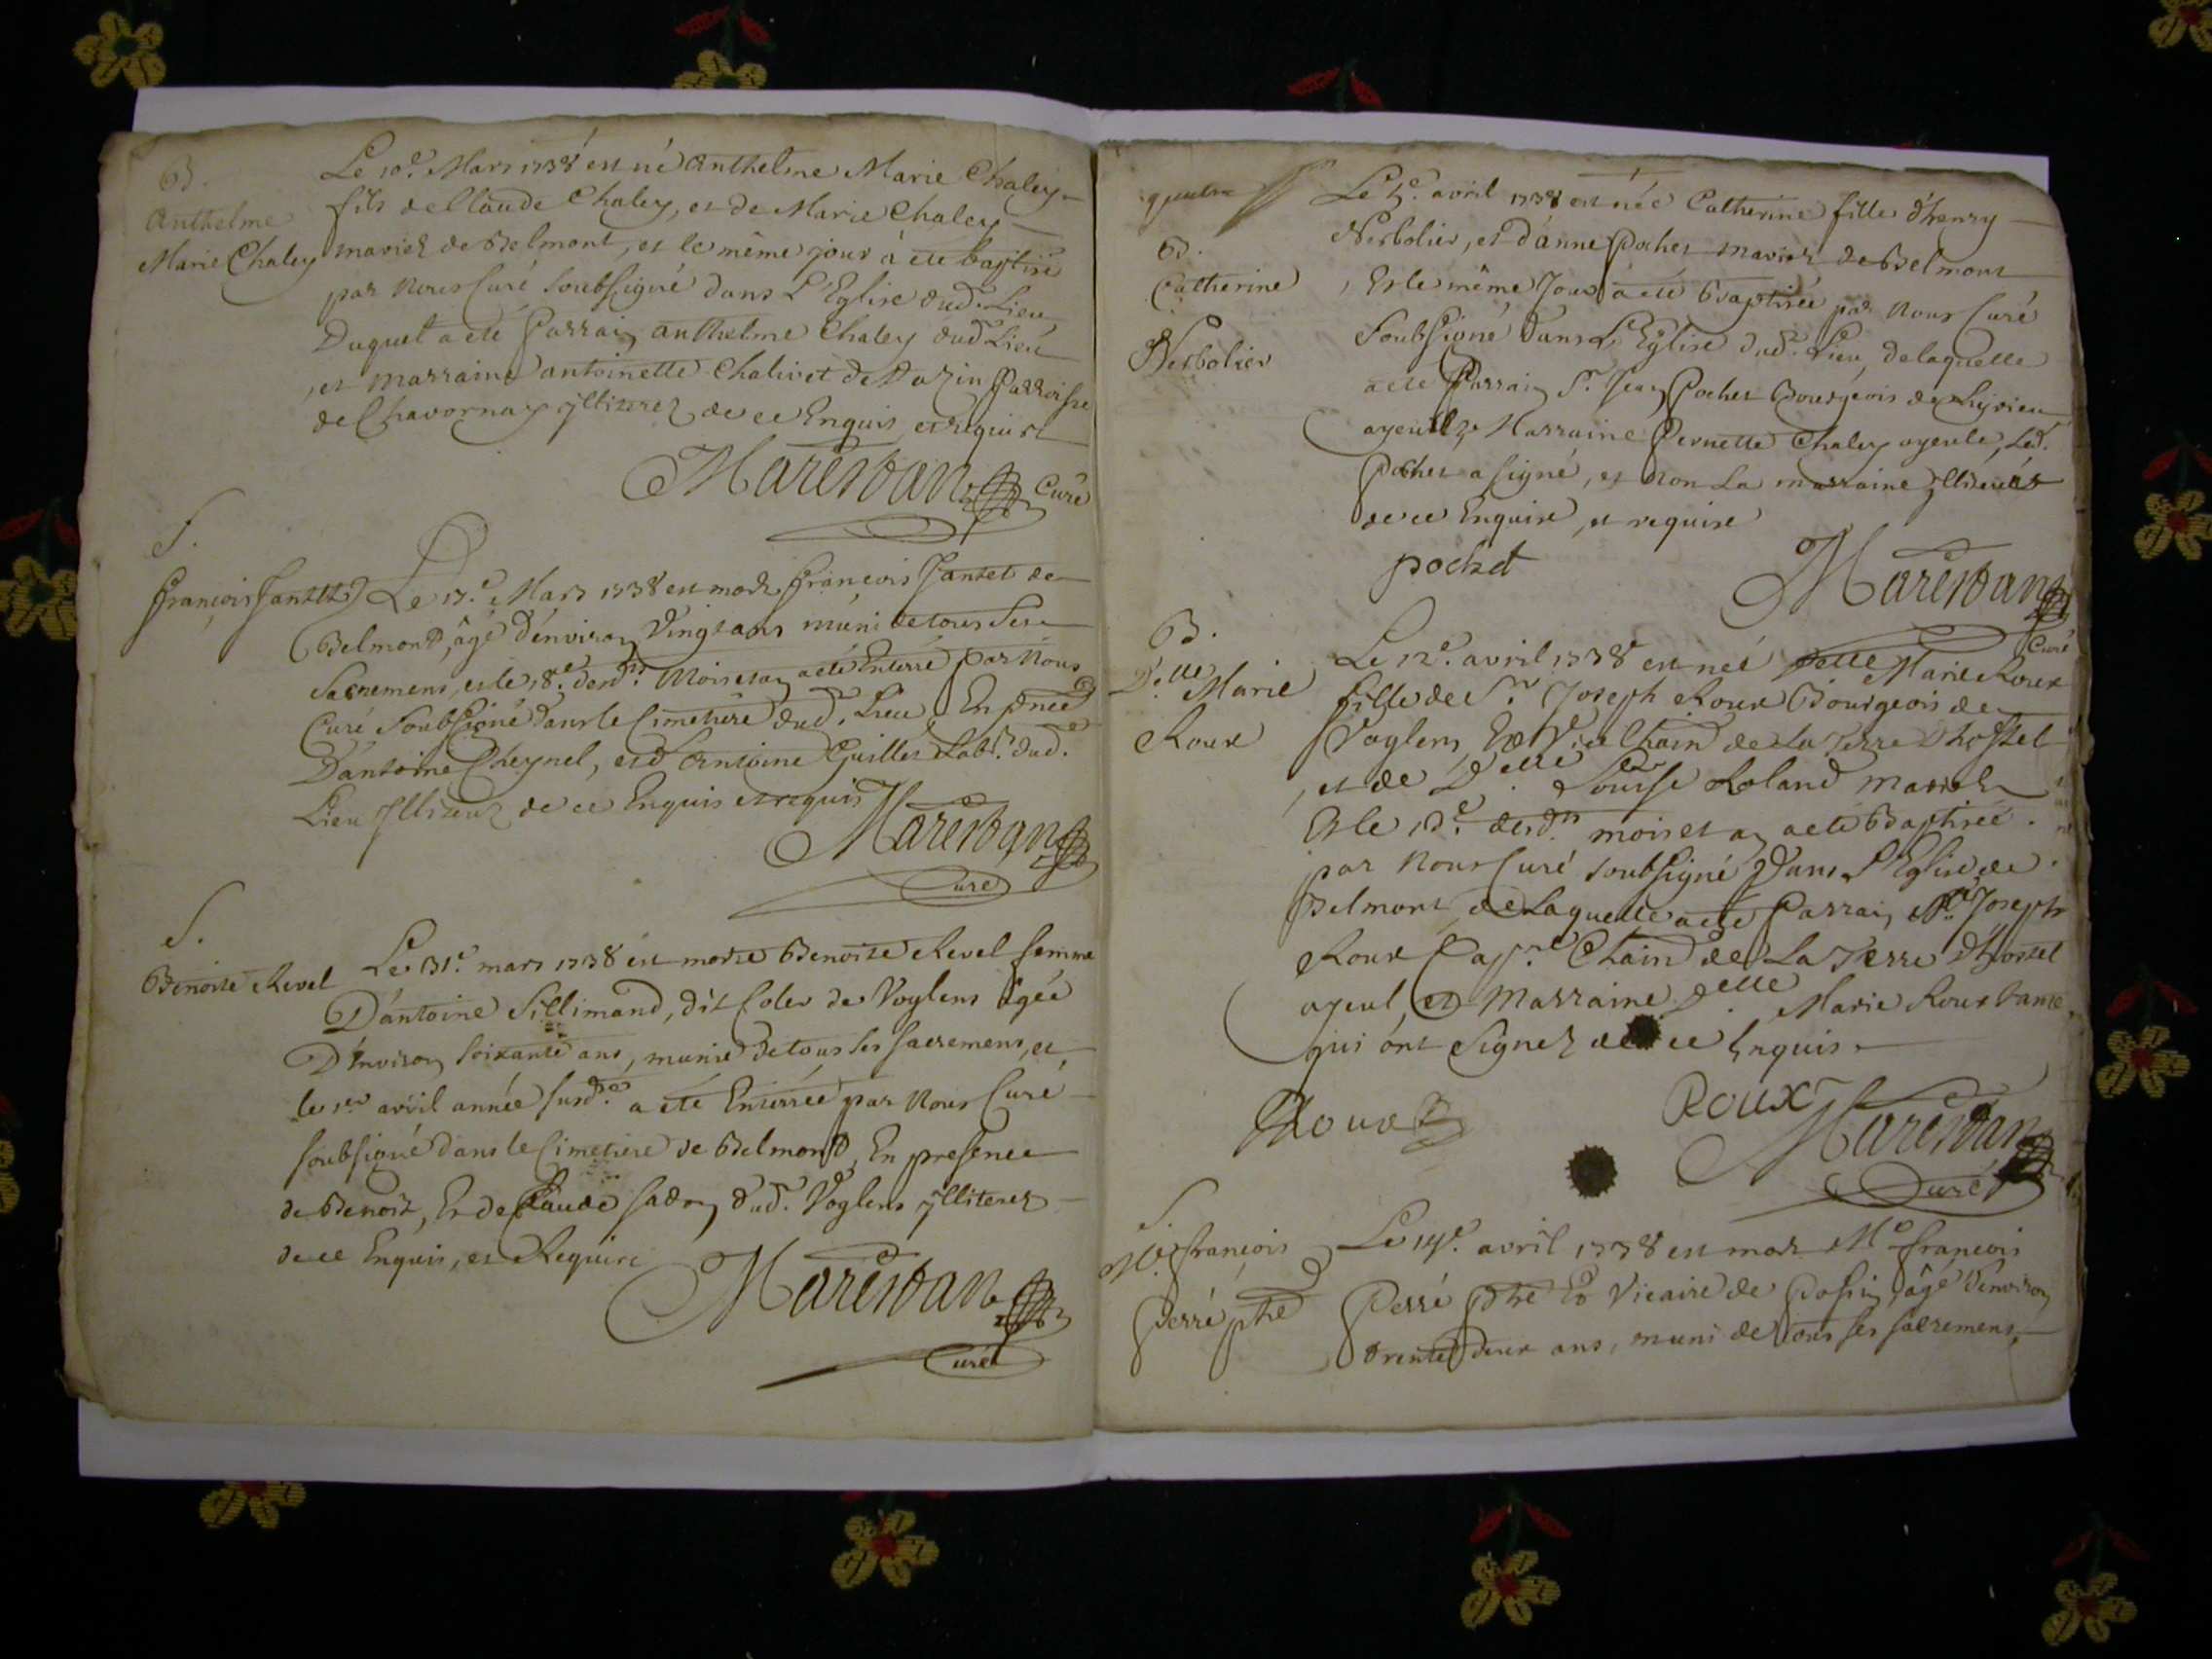 B.
Anthelme
Marie Chaley
Le 10.e Mars 1738 est né Anthelme Marie Chaley
fils de Claude Chaley, et de Marie Chaley
mariez de Belmont, et le même jour à eté baptisé
par Nous Curé soubsigné dans L'Eglise dud. Lieu,
Duquel a eté Parrain anthelme Chaley dud Lieu
, et marraine antoinette Chalivet de Parroisse
de Chavornay jlliterez de ce Enquis et requis
Marestan Curé
S.
françois Jantet
Le 17.e Mars 1738 est mort françois Jantet de
Belmont, âgé d'environ Vingt ans muni de tous Ses
Sacremens, et le 18.e desd.ts Mois et an a eté Enterré par Nous
Curé Soubsigné dans le Cimetiere dud. Lieu En pnce
D'antoine Cheynel, et d'Antoine Guillet Lab.r dud.
Lieu Jlliterez de ce Enquis et requis
Marestan
Curé
S.
Benoite Revel
Le 31.e mars 1738 est morte Benoite Revel femme
D'antoine Sillimand, dit Coler de Voglens âgée
D'Environ soixante ans, munie de tous ses sacremens, et
le 1.er avril année susd.e a eté Enterrée par Nous Curé
soubsigné dans le Cimetiere de Belmont, En presence
de Benoit, Et de Claude sadon dud. Voglens jlliterez
de ce Enquis, et Requis
Marestan
Curé
quatre
B.
Catherine
Nerbolier
Le 5.e avril 1738 est née Catherine fille d'henry
Nerbolier, et d'anne pochet mariez de Belmont
, Et le même Jour a eté Baptisée par Nous Curé
Soubsigné dans L'Eglise dud. Lieu, de laquelle
a eté Parrain S.r Jean Pochet Bourgeois de Lhjrieu
ayeul, et Marraine Pernette Chaley ayeule, Led.
Pochet a signé, et non La marraine jlliterée
de ce Enquise, et requise
pochet
Marestan
Curé
B.
D.elle Marie
Roux
Le 12.e avril 1738 est née D.elle Marie Roux
fille de S.r Joseph Roux Bourgeois de
Voglens, Et Vice Chatn de La Terre d'hostel
, et de D.elle Louise Roland mariez
Et le 13.e desd.ts mois et an a eté Baptisée
par Nous Curé soubsigné Dans L'Eglise de
Belmont, de Laquelle a eté Parrain M.e Joseph
Roux Cap.ne Chatn de La Terre d'hostel
ayeul, et Marraine D.elle Marie Roux tante
qui ont Signez de ce Enquis
Roux
Roux
Marestan
Curé
S.
M.e françois
Perré ptre
Le 14.e avril 1738 est mort M.e françois
Perré ptre Et Vicaire de Possin, âgé d'environ
trente deux ans, muni de tous ses sacremens,